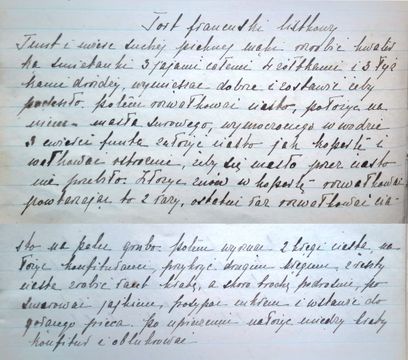 Tort francuski listkowy
Funt i ćwierć suchej pięknej mąki zarobić kwartą
śmietanki 3 jajami całemi 4 żółtkami i 3 łyż
kami drożdży, wymieszać dobrze i zostawić żeby
podeszło. Potem rozwałkować ciasto, położyć na
niem masła surowego, wymoczonego w wodzie
3 ćwierci funta założyć ciasto jak kopertę i
wałkować ostrożnie, żeby się masło przez ciasto
nie przebiło. Złożyć znów w kopertę rozwałkować
powtarzając to 2 razy, ostatni raz rozwałkować cia-
sto na palec grubo. Potem wyrznąć 2 kręgi ciasta, na
łożyć konfiturami, przykryć drugim kręgiem, z reszty
ciasta zrobić rant kratę, a skoro trochę podrośnie, po
smarować jajkiem, posypać cukrem i wstawić do
gorącego pieca. Po upieczeniu nałożyć między kraty
konfitur i oblukrować